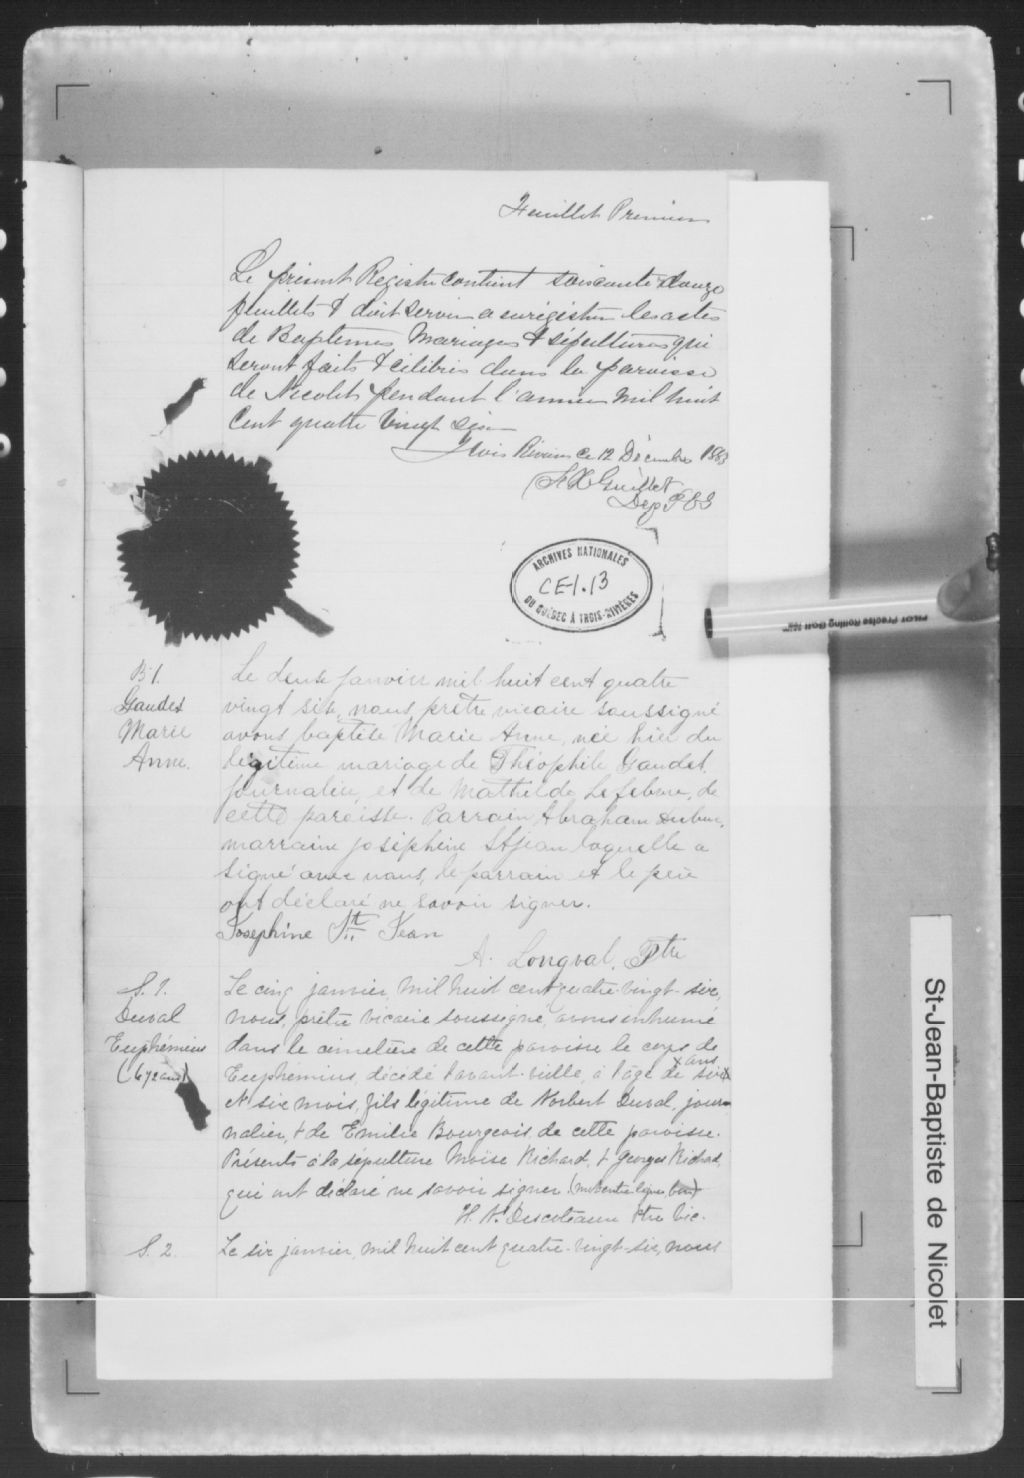 Feuillet Premier
Le présent Registre contient soixante & onze
feuillets & doit servir a enrégistrer les actes
de Baptemes Mariages & sépultures qui
seront faits & célébrés dans la paroisse
de Nicolet pendant l'année mil huit
Cent quatre vingt six
Trois Rivières ce 12 Décembre 188
F X Guillet
Dep
ARCHIVES NATIONALES
CE-1.13
DU QUÉBEC À TROIS-RIVIÈRES
PILOT Precise Rolling Ball
B 1.
Gaudet
Marie
Anne.
Le deux janvier mil huit cent quatre
vingt six, nous prêtre vicaire soussigné
avons baptisé Marie Anne, née hier du
légitime mariage de Théophile Gaudet
journalier, et de Mathilde Lefebvre, de
cette paroisse. Parrain Abraham
marraine joséphine St jean laquelle a
signé avec nous, le parrain et le père
ont déclaré ne savoir signer.
Josephine St Jean
A. Longval, Ptre
S. 1.
Duval
Euphémius
(6½ ans)
Le cinq janvier, mil huit cent quatre-vingt-six,
nous, prêtre vicaire soussigné, avons inhumé
dans le cimetière de cette paroisse le corps de
Euphémius, décédé l'avant-veille, à l'âge de six x ans
et six mois, fils légitime de Norbert Duval, jour-
nalier, & de Emilie Bourgeois, de cette paroisse.
Présents à la sépulture Moïse Richard, & Georges Richard,
qui ont déclaré ne savoir signer. (mot entre lignes bon)
H. A. Descoteaux Ptre Vic.
S. 2.
Le six janvier, mil huit cent quatre-vingt-six, nous
St-Jean-Baptiste de Nicolet